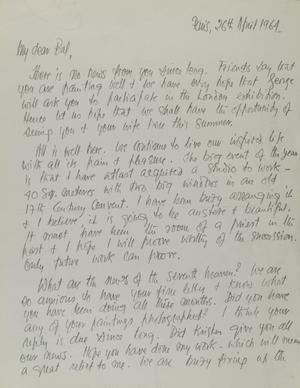 Paris, 26th April 1964
My dear Bal,
There is no news from you since long. Friends say that
you are painting well & we have every hope that George
will ask you to participate in the London exhibition.
Hence let us hope that we shall have the opportunity of
seeing you & your wife here this summer.
All is well here. We continue to live our inspired life
with all its pain & pleasure. The big event of the year
is that I have atlast acquired a studio to work -
40 Sq. metres with two big windows in an old
17th Century Convent. I have been busy arranging it
& I believe, it is going to be austere & beautiful.
It must have been the room of a priest in the
past & I hope I will prove worthy of the succession.
Only future work can prove.
What are the news of the seventh heaven? We are
so anxious to have your fine letter & know what
you have been doing all these months. Did you have
any of your paintings photographed? I think your
reply is due since long. Did Krishen give you all
our news. Hope you have done my work - which will mean
a great relief to me. We are busy fixing up the